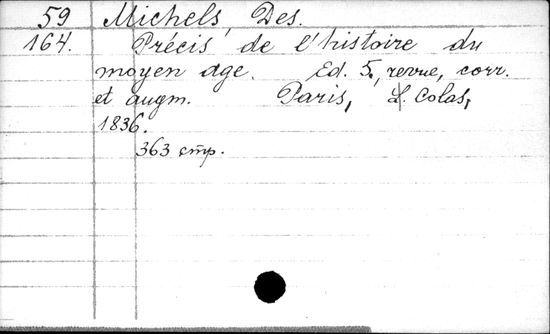 59 Michels, Des.
164. Précis de l'histoire du
moyen age. Ed. 5, revue, corr.
et augm. Paris, L. Colas,
1836.
363 стр.